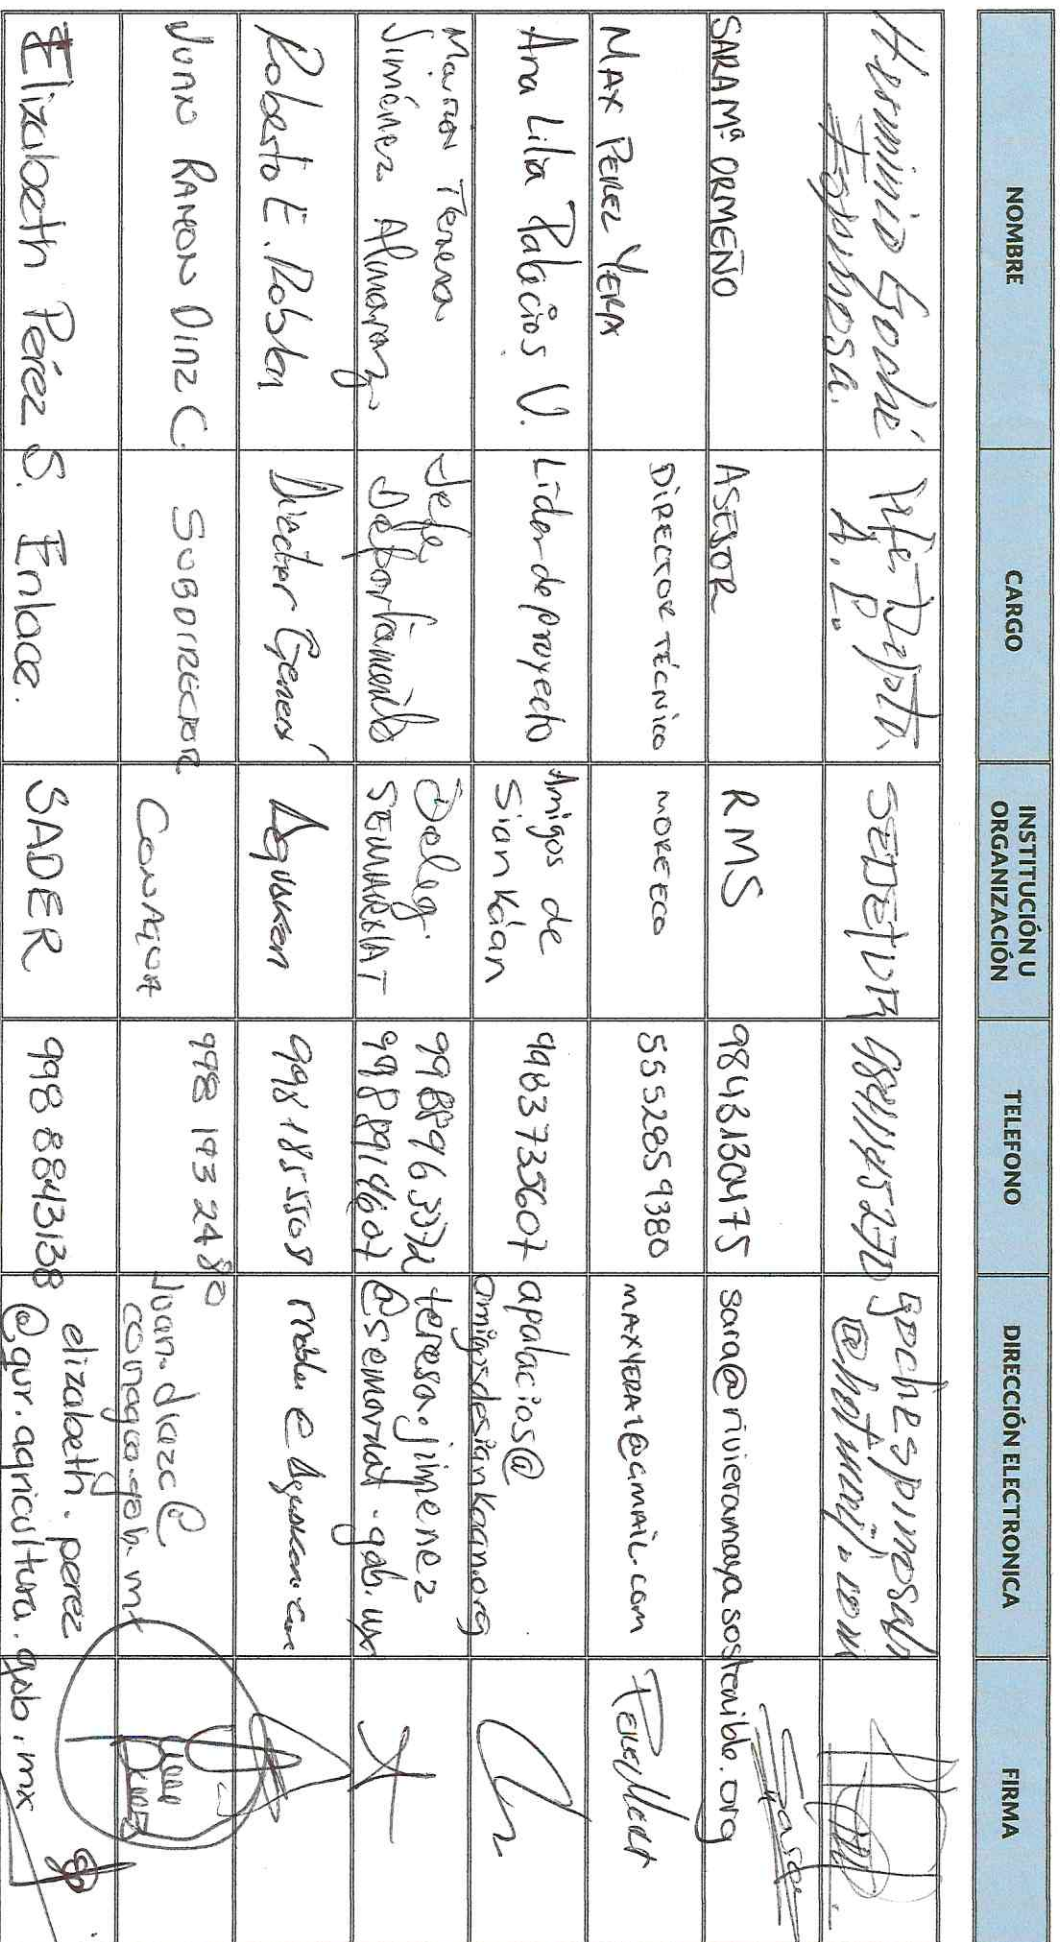 NOMBRE
CARGO
INSTITUCIÓN U
ORGANIZACIÓN
TELEFONO
DIRECCIÓN ELECTRONICA
FIRMA
Herminio Goché
Espinosa.
Jefe Depto.
SEDETUR
9841145270
gochespinosah
@hotmail.com
SARA Mª ORMEÑO
ASESOR
RMS
9843130475
sara@rivieramayasostenible.org
Sara
MAX PEREZ YERA
DIRECTOR TÉCNICO
MOREECO
5552859380
MAXYERA1@GMAIL.COM
Ana Lilia Palacios V.
Lider de proyecto
Amigos de
Sian Kaan
9983735607
apalacios@
amigosdesiankaan.org
Marron Teresa
Jiménez Almaraz
Jefe
Departamento
Deleg.
SEMARNAT
9988963372
9988914607
teresa.jimenez
@semarnat.gob.mx
Roberto E. Robles
Director General
Aguakan
998 185 5508
JUAN RAMON DIAZ C.
SUBDIRECTOR
CONAGUA
998 193 2480
Juan.diazc@
conagua.gob.mx
Elizabeth Pérez S.
Enlace.
SADER
998 8843138
elizabeth.perez
@qur.agricultura.gob.mx